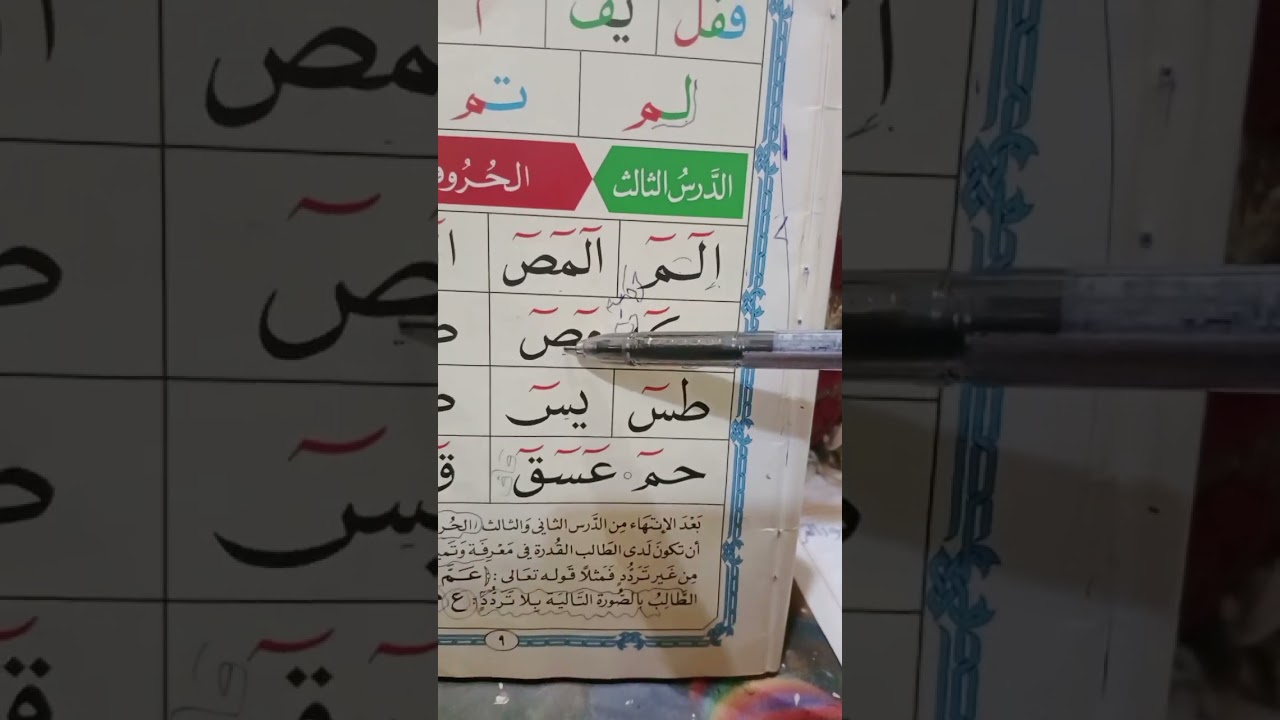 قفل يف
لم تم
الدَّرسُ الثالث الحُرُوف
الٓمٓ الٓمٓصٓ
طسٓ يسٓ
حمٓ عٓسٓقٓ
بَعْدَ الإنتهَاء مِن الدَّرس الثاني وَالثالث الحُر
أن تكونَ لَدى الطَالب القُدرة في مَعْرِفَة وَتَمي
مِن غَير تَرَدُّدٍ فَمثلاً قَوله تعَالى : عَمَّ
الطَّالِبُ بالصُّورَة التَّاليَة بِلا تَرَدُّدٍ : ع
٩